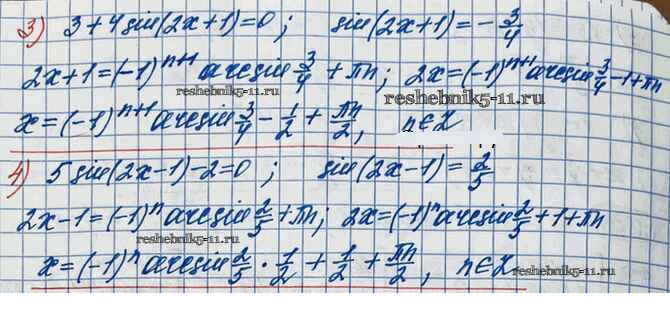 3) 3 + 4 sin(2x+1) = 0 ; sin(2x+1) = - 3/4
2x+1 = (-1)^(n+1) arcsin 3/4 + πn ; 2x = (-1)^(n+1) arcsin 3/4 - 1 + πn
reshebnik5-11.ru reshebnik5-11.ru
x = (-1)^(n+1) arcsin 3/4 - 1/2 + πn/2 , n ∈ Z
4) 5 sin(2x-1) - 2 = 0 ; sin(2x-1) = 2/5
2x-1 = (-1)^n arcsin 2/5 + πn ; 2x = (-1)^n arcsin 2/5 + 1 + πn
reshebnik5-11.ru
x = (-1)^n arcsin 2/5 · 1/2 + 1/2 + πn/2 , n ∈ Z
reshebnik5-11.ru